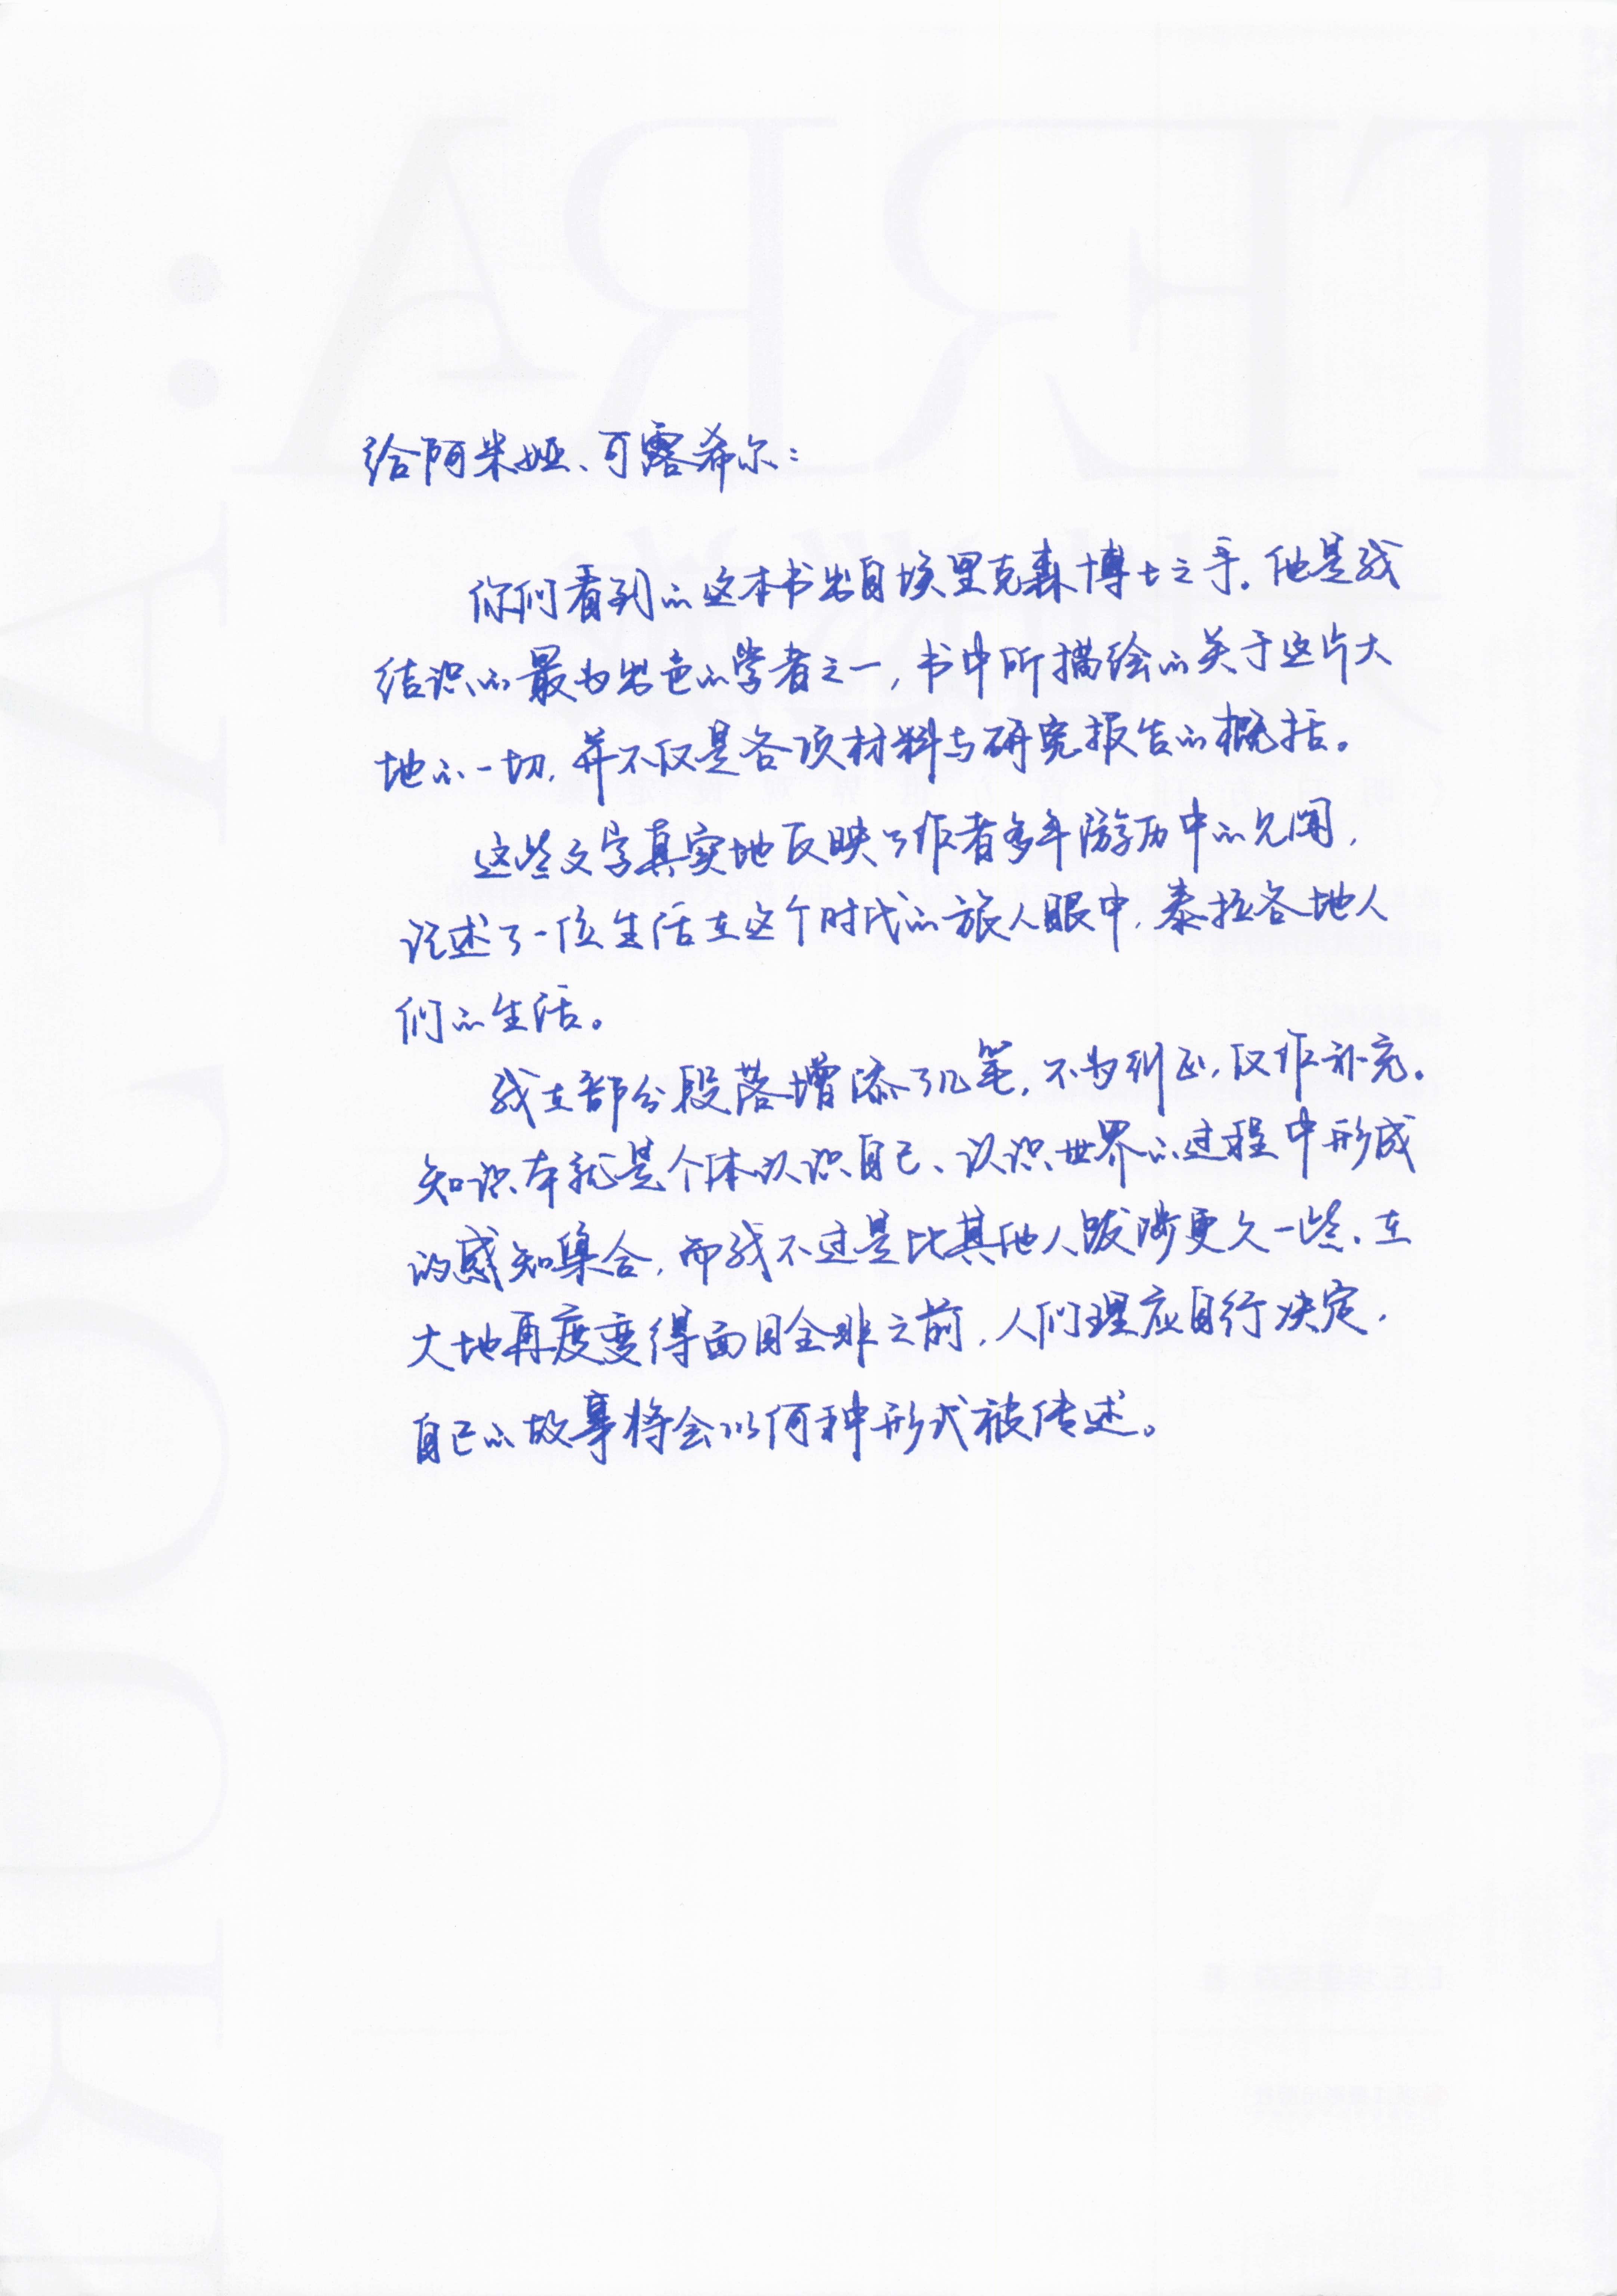 给阿米娅、可露希尔：
你们看到的这本书出自埃里克森博士之手。他是我
结识的最为出色的学者之一，书中所描绘的关于这片大
地的一切，并不仅是各项材料与研究报告的概括。
这些文字真实地反映了作者多年游历中的见闻，
记述了一位生活在这个时代的旅人眼中，泰拉各地人
们的生活。
我在部分段落增添了几笔，不为纠正，仅作补充。
知识本就是个体认识自己、认识世界的过程中形成
的感知集合，而我不过是比其他人跋涉更久一些。在
大地再度变得面目全非之前，人们理应自行决定，
自己的故事将会以何种形式被传述。
TERRA: